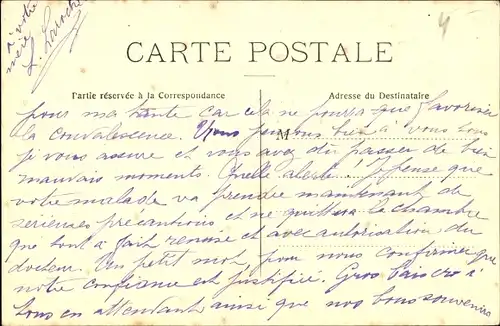 à votre
mère
L. Laroche
4
CARTE POSTALE
Partie réservée à la Correspondance
Adresse du Destinataire
M
pour ma tante car cela ne pourra que favoriser
la convalescence. Nous pensons bien à vous tous
je vous assure et vous avez dû passer de bien
mauvais moments. Quelle alerte. Je pense que
votre malade va prendre maintenant de
sérieuses précautions et ne quittera la chambre
que tout à fait remise et avec autorisation du
docteur. Un petit mot pour nous confirmer que
notre confiance est justifiée. Gros baisers à
tous en attendant ainsi que nos bons souvenirs